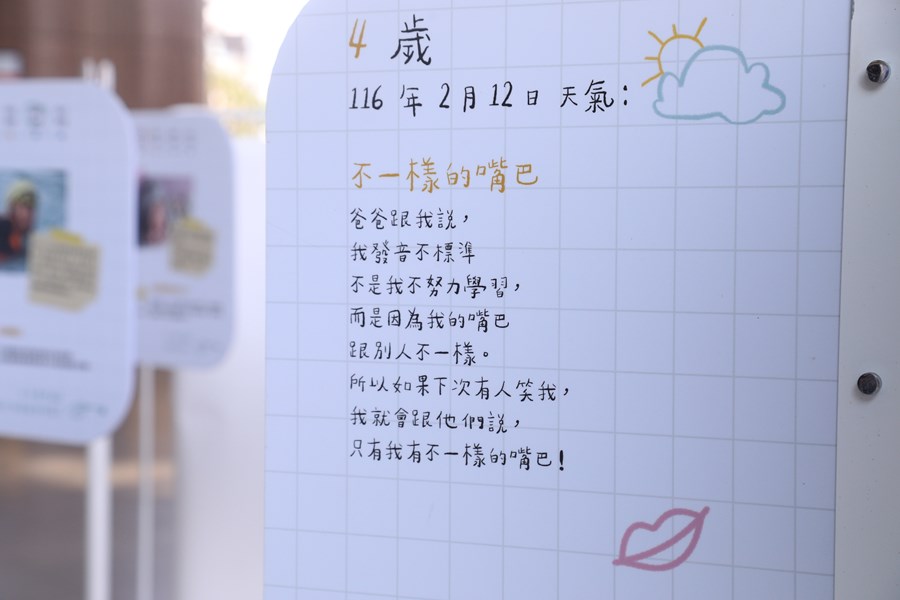 4 歲
116 年 2 月 12 日 天氣：
不一樣的嘴巴
爸爸跟我說，
我發音不標準
不是我不努力學習，
而是因為我的嘴巴
跟別人不一樣。
所以如果下次有人笑我，
我就會跟他們說，
只有我有不一樣的嘴巴！